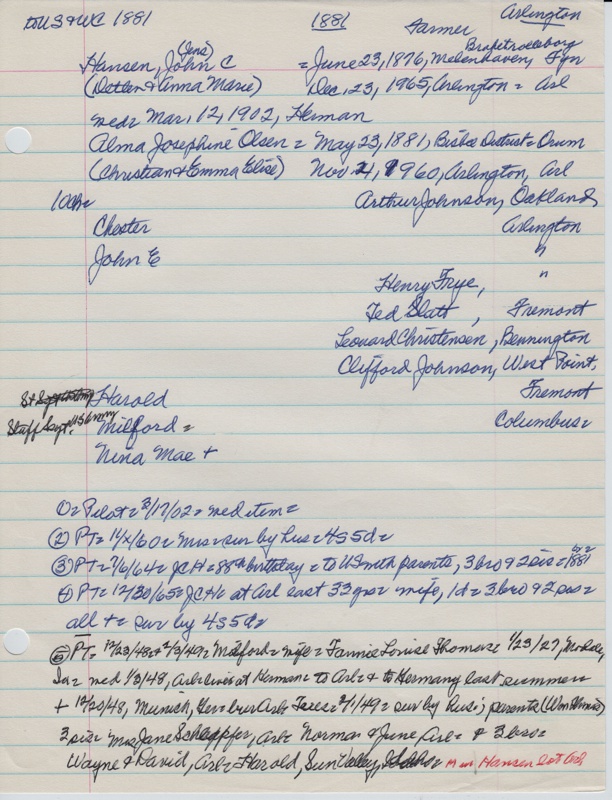 to US & WC 1881 1881 Farmer Arlington
Hansen, John C (Jens) = June 23, 1876, Melenhaven, Brapetrollsborg Fyn
(Detlen & Anna Marie) Dec, 23, 1965, Arlington = Arl
med = Mar, 12, 1902, Herman
Alma Josephine Olsen = May 23, 1881, Bisbee District = Orum
(Christian & Emma Elise) Nov 4, 1960, Arlington, Arl
10ch = Arthur Johnson, Oakland
Chester Arlington
John E "
"
Henry Frye,
Ted Slatt, Fremont
Leonard Christensen, Bennington
Clifford Johnson, West Point,
Harold Fremont
Staff Sgt. Milford = Columbus =
Nina Mae +
① = Pilot = 3/17/02 = med item =
② PT = 11/X/60 = Mrs = sur by hus = 4s 5d =
③ PT = 7/6/64 = JCH = 88th birthday = to US with parents, 3 bro & 2 sis = in = 1881
④ PT = 12/30/65 = JCH = at Arl last 33 yrs = wife, 1d = 3 bro & 2 sis =
all + = sur by 4s 5d =
⑤ PT = 12/23/48 & 2/3/49 = Milford = wife = Fannie Louise Thomas = 1/23/27,
Ia = med 1/3/48, Arl = lives at Herman = to Arl = & to Germany last summer =
+ 12/20/48, Munich, Ger = bur Arl = 2/1/49 = sur by hus; parents (Wm Thomas)
3 sis = Mrs Jane Schapfer, Arl = Norma & June, Arl = & 3 bro =
Wayne & David, Arl = Harold, Sun Valley, Idaho = in Hansen lot Arl